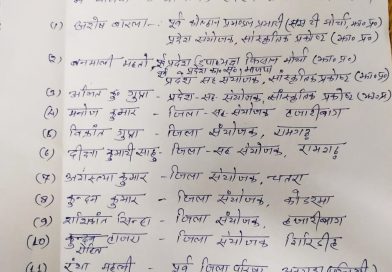 (1) अशेष बारला -- पूर्व कोल्हान प्रमण्डल प्रभारी (मोर्चा, झा० प्र०)
प्रदेश संयोजक, सांस्कृतिक प्रकोष्ठ (झा० प्र०)
(2) बनमाली महतो - पूर्व प्रदेश किसान मोर्चा (झा० प्र०)
प्रदेश सह संयोजक, सांस्कृतिक प्रकोष्ठ (झा० प्र०)
(3) कु० गुप्ता - प्रदेश - सह - संयोजक, सांस्कृतिक प्रकोष्ठ (झा० प्र०)
(4) मनोज कुमार - जिला - सह - संयोजक, हजारीबाग
(5) विक्रांत गुप्ता - जिला संयोजक, रामगढ़
(6) दीक्षा कुमारी साहु - जिला - सह संयोजक, रामगढ़
(7) अगस्त्या कुमार - जिला संयोजक, चतरा
(8) कुन्दन कुमार - जिला संयोजक, कोडरमा
(9) शशिकांत सिन्हा - जिला संयोजक, हजारीबाग
(10) कुन्दन हाजरा - जिला संयोजक गिरिडीह
रोहित
(11) रंथा महली - पूर्व जिला परिषद